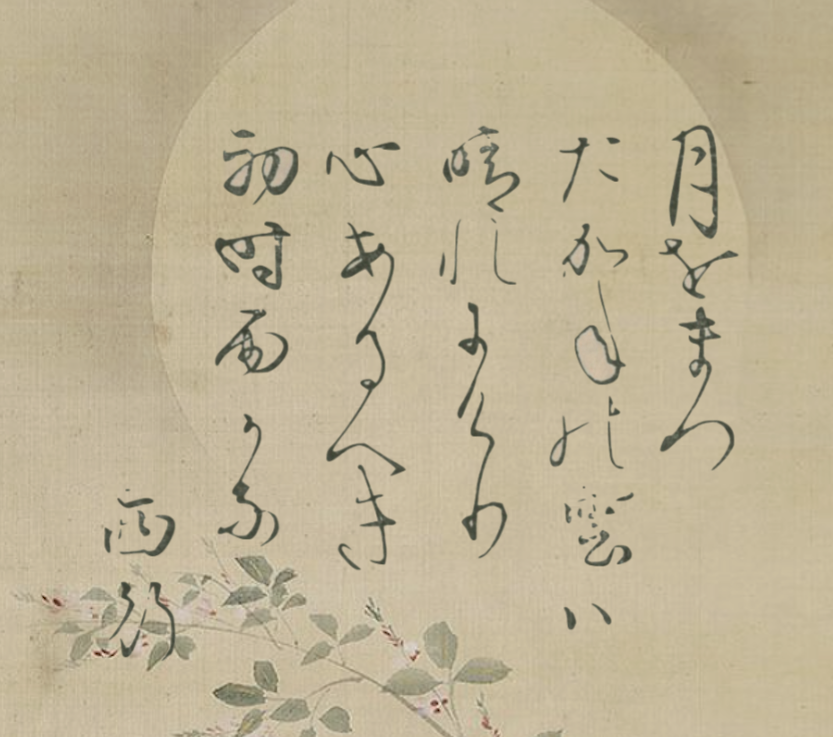 月をまつ
たかねの雲は
晴れにけり
心あるへき
初時雨かな
西行